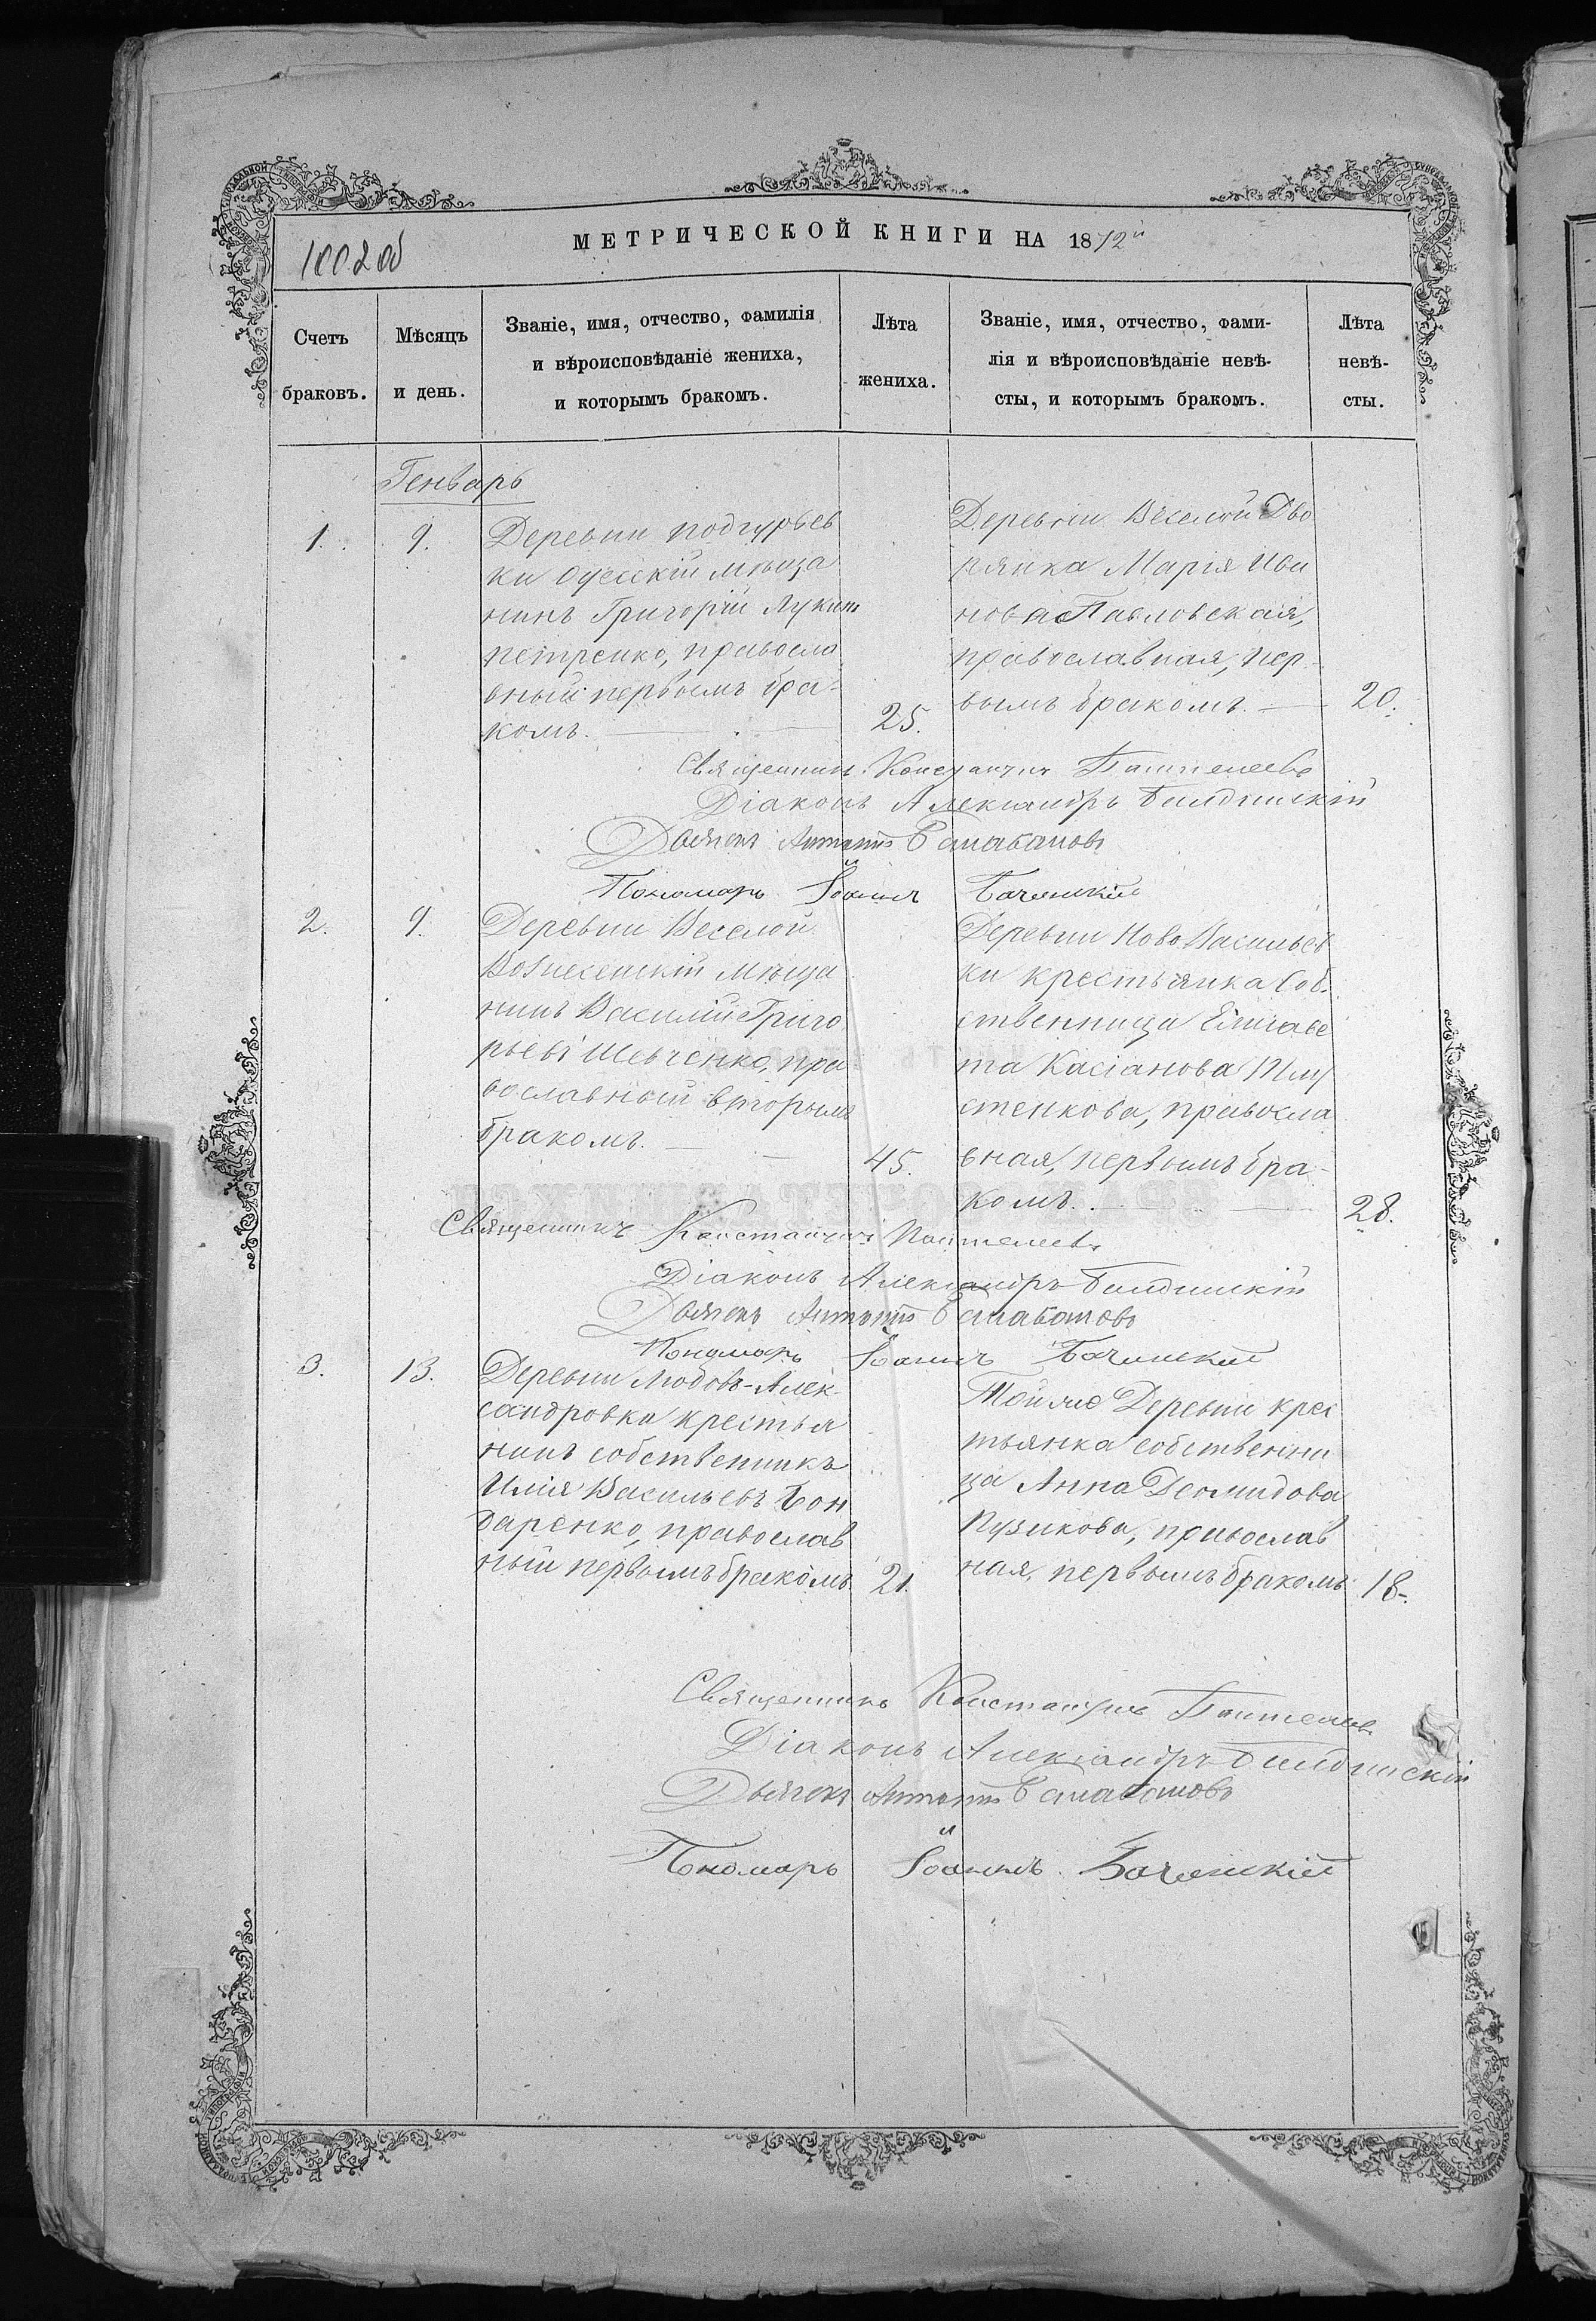 МЕТРИЧЕСКОЙ КНИГИ НА 1872й
1002 об
Счетъ браковъ.
Мѣсяцъ и день.
Званіе, имя, отчество, фамилія
и вѣроисповѣданіе жениха,
и которымъ бракомъ.
Лѣта жениха.
Званіе, имя, отчество, фами-
лія и вѣроисповѣданіе невѣ-
сты, и которымъ бракомъ.
Лѣта невѣ-
сты.
Генварь
1. 9.
Деревни Подгурьев
ки Одесскій мѣща
нинъ Григорій Лукинъ
Петренко, правосла
вный первымъ бра-
комъ. 25.
Деревни Веселой Дво
рянка Марія Ива
нова Павловская,
православная, пер
вымъ бракомъ. 20.
Священникъ Константинъ Пантелеевъ
Діаконъ Александръ
Дьячекъ Антоній Балабановъ
Пономарь Іоаннъ Бачинскій
2. 9.
Деревни Веселой
Вознесенскій мѣща
нинъ Василій Григо
рьевъ Шевченко, пра
вославный вторымъ
бракомъ. 45.
Деревни Ново Васильев
ки крестьянка соб
ственница Елисаве
та Касіанова
стенкова, правосла
вная, первымъ бра-
комъ. 28.
Священникъ Константинъ Пантелеевъ
Діаконъ Александръ
Дьячекъ Антоній Балабановъ
Пономарь Іоаннъ Бачинскій
3. 13.
Деревни Любовь-Алек-
сандровка крестья
нинъ собственникъ
Илія Васильевъ Бон
даренко, православ
ный первымъ бракомъ 21.
Той же Деревни крес
тьянка собственни
ца Анна Деомидова
Пузикова, православ
ная, первымъ бракомъ 18.
Священникъ Константинъ Пантелеевъ
Діаконъ Александръ
Дьячекъ Антоній Балабановъ
Пономарь Іоаннъ Бачинскій